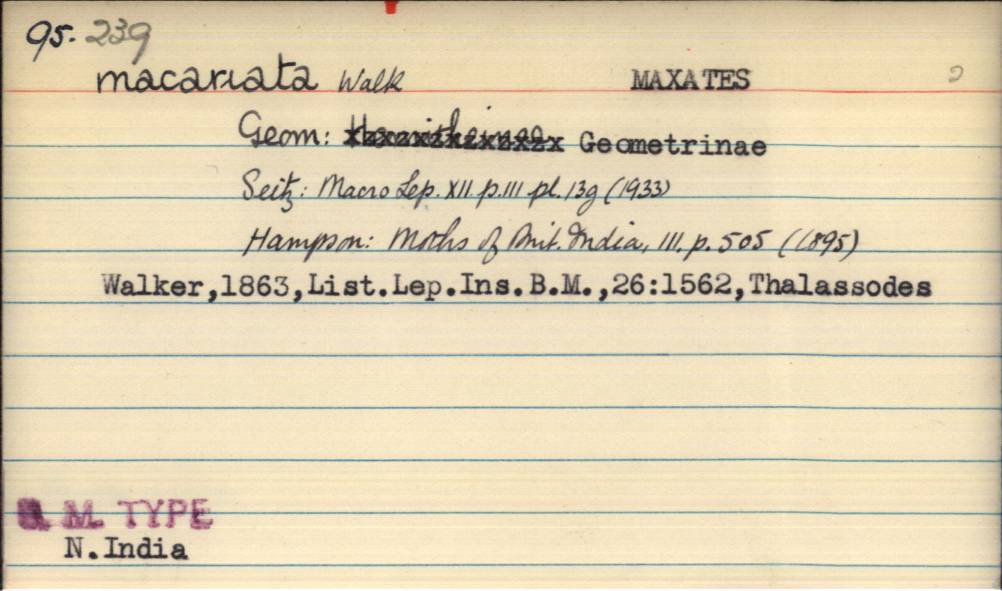 95. 239
macariata Walk MAXATES 2
Geom: Hemitheinae Geometrinae
Seitz: Macro Lep. XII. p.111 pl. 13g (1933)
Hampson: Moths of Brit. India, III. p. 505 (1895)
Walker,1863,List.Lep.Ins.B.M.,26:1562,Thalassodes
B. M. TYPE
N.India